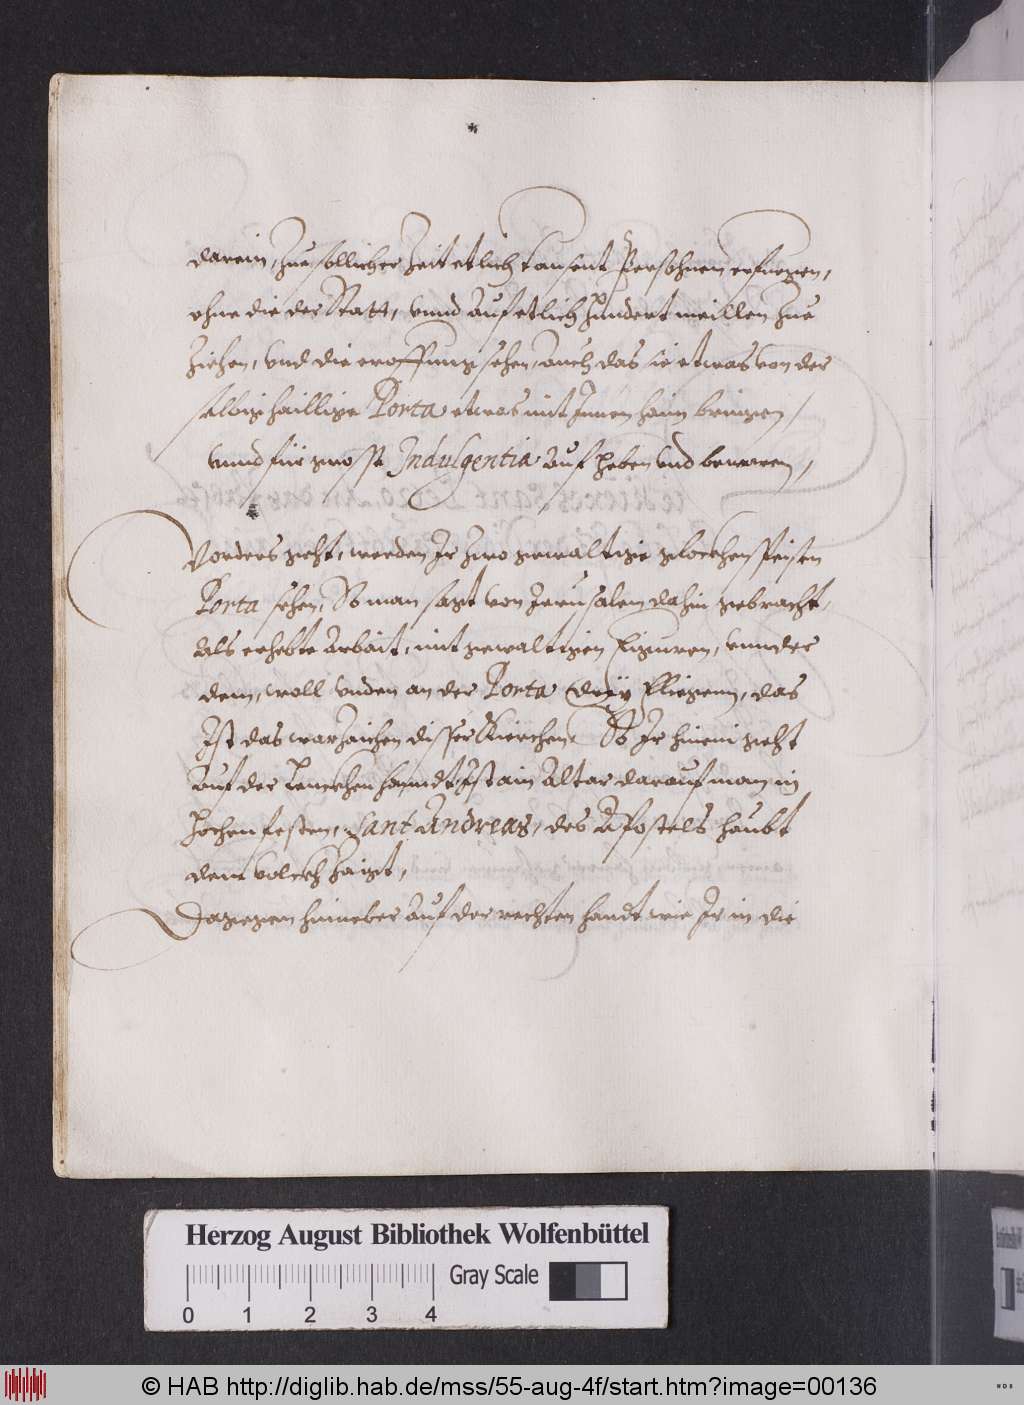 darein, Zue sollicher Zeit etlich tausent Persohnen erfuegen,
ohne die der Statt, vnnd Auf etlich hundert meillen Zue
Ziehen, vnd die eroffnung sehen, Auch das sie etwas von der
selbig haillige Porta etwas mit Innen haim bringen,
vnnd für grosse Indulgentia Auf heben vnd bewaren,
Vorders geht, werden Ir zwo gewaltige glockhenspeisen
Porta sehen, So man sagt von Jerusalem dahin gebracht,
Als erhebte Arbait, mit gewaltigen Figuren, vnnder
dem, woll vnden an der Porta drey Fliegenn, das
Ist das warzaichen disser Kierchen, So Ir hinein geht
Auf der Lenckhen handt Ist ain Altar darauf man in
hochen festen, Sant Andreas, des Apostels haubt
dem volckh Zaigt,
Dagegen hinneber Auf der rechten handt wie Ir in die
Herzog August Bibliothek Wolfenbüttel
Gray Scale
0 1 2 3 4
© HAB http://diglib.hab.de/mss/55-aug-4f/start.htm?image=00136